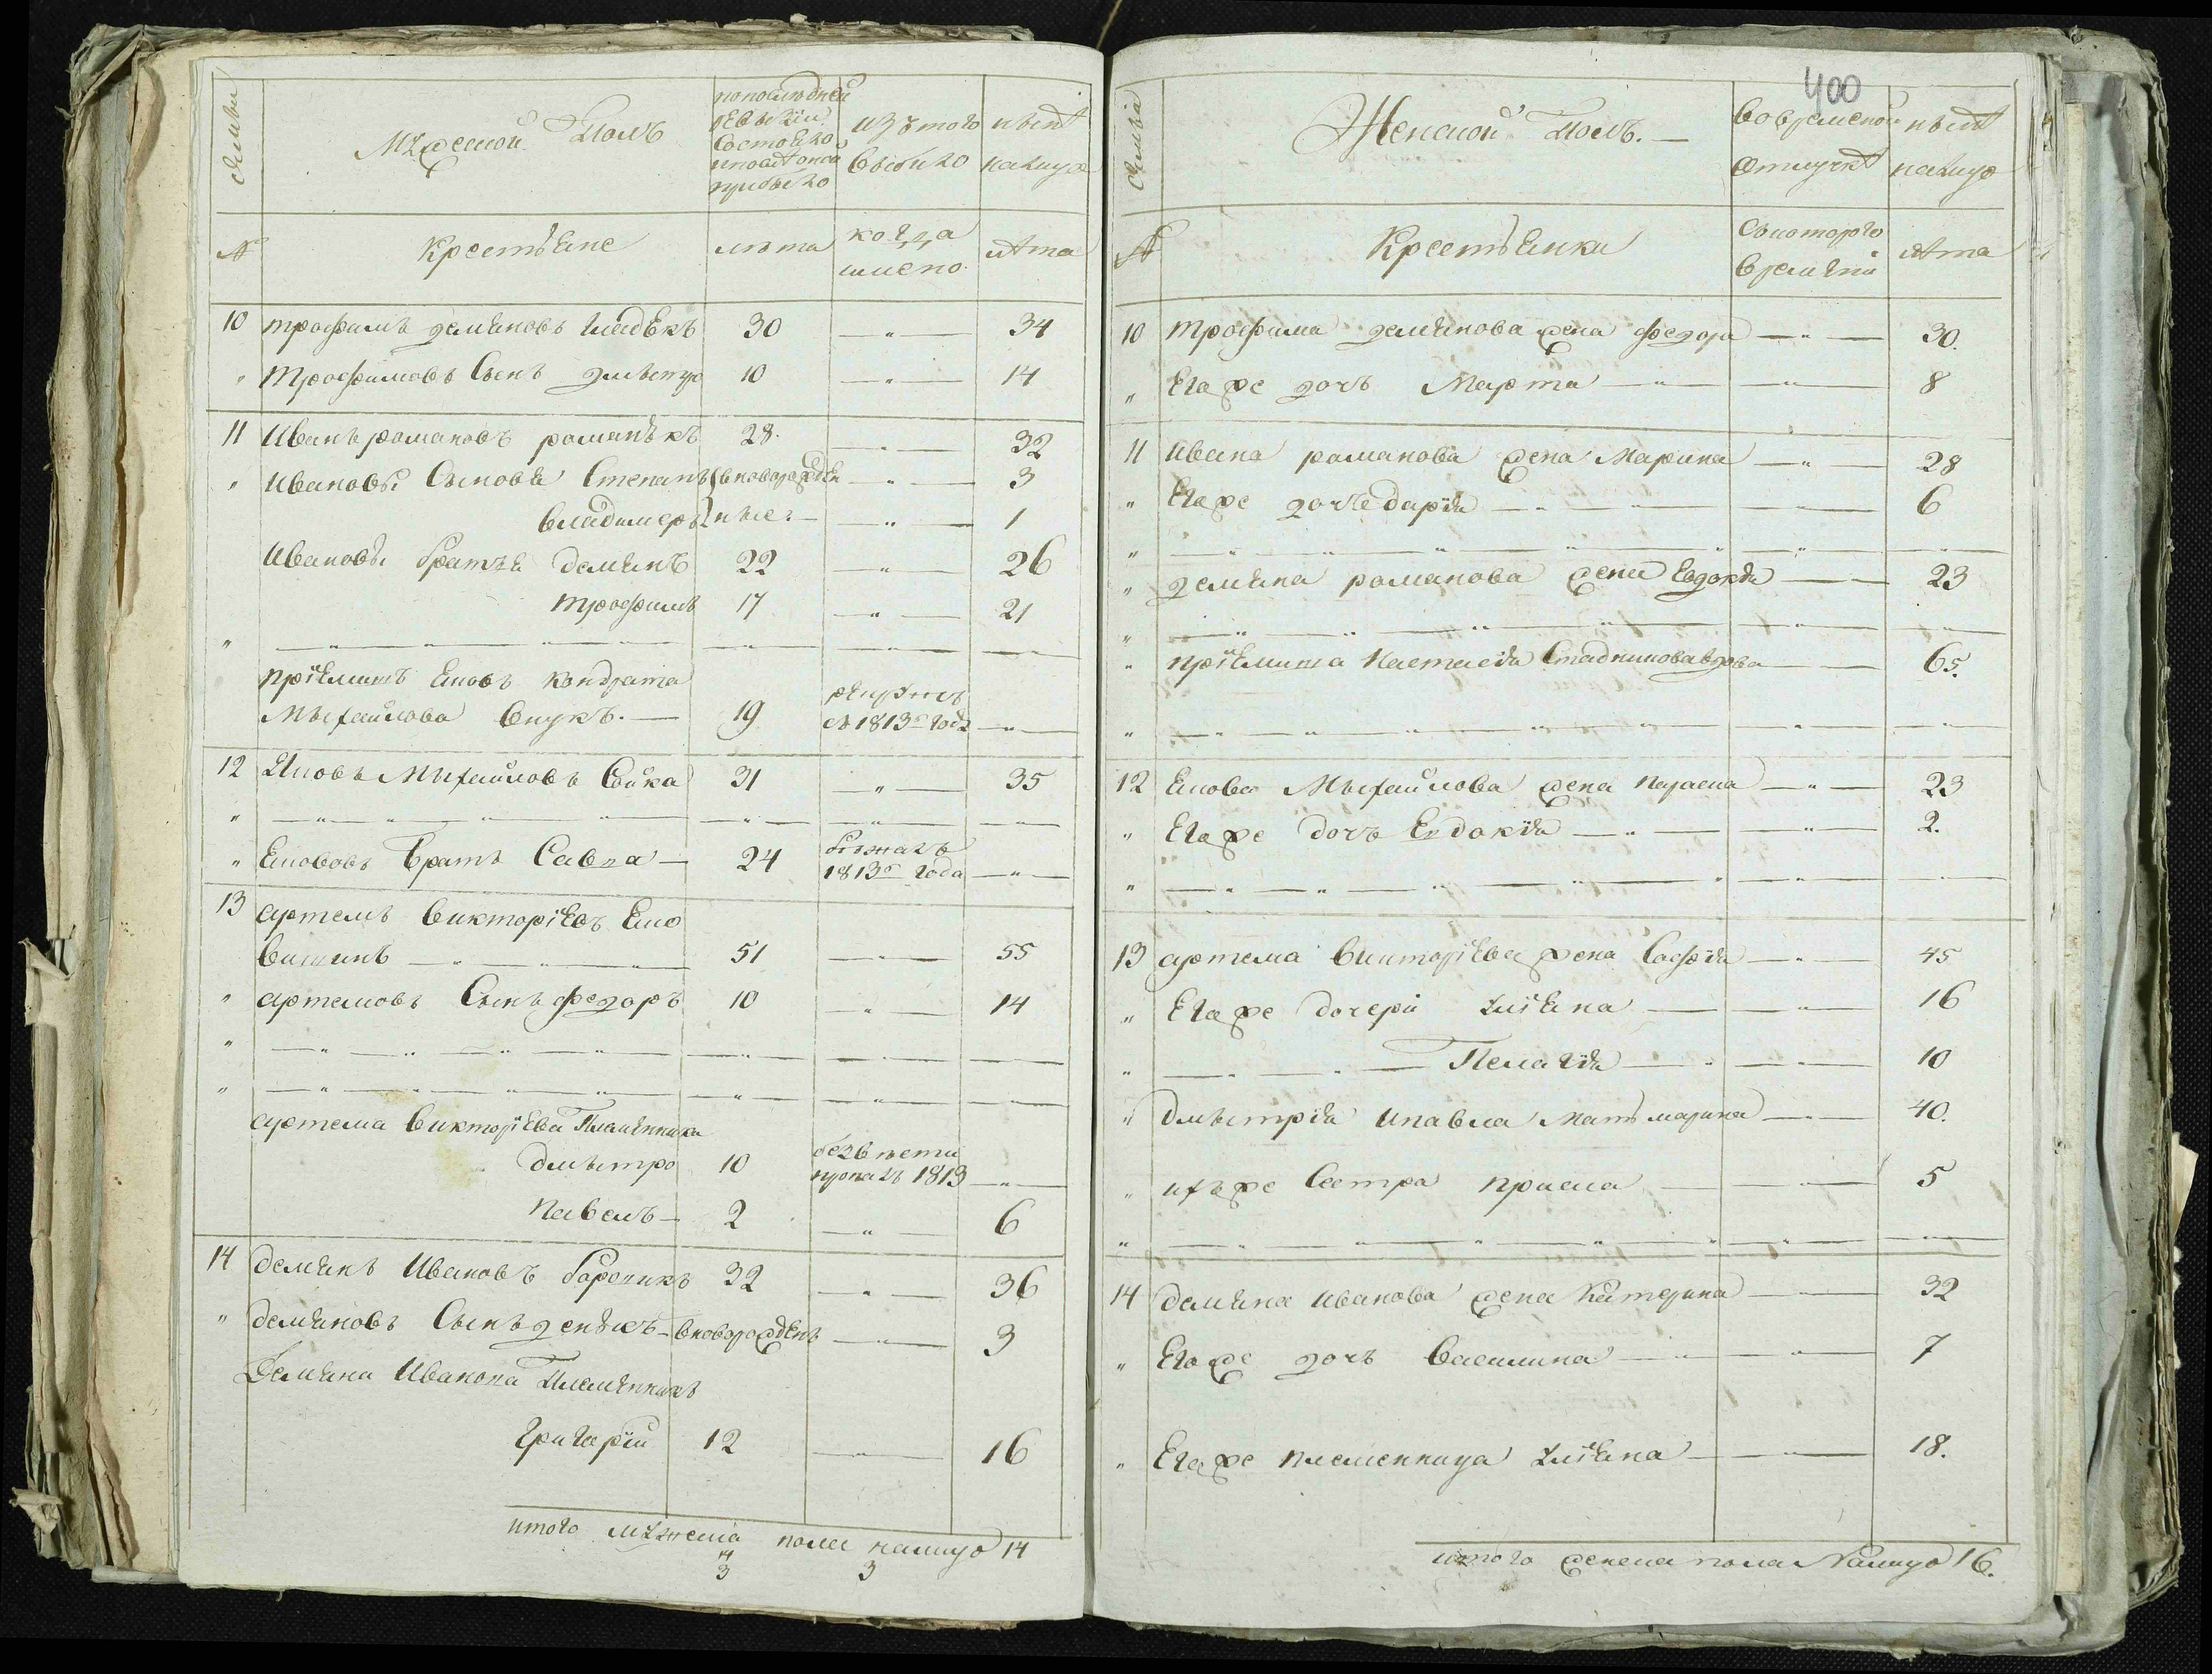 Мужеской Полъ
попослѣдней
ревизіи
состояло
ипослѣ оной
прибыло
изтого
выбыло
нынѣ
налицо
№
Крестьяне
лѣта
когда
имено
лѣта
10 трофимъ демяновъ 30 — 34
Трофимовъ Сынъ дмытро 10 — 14
11 Иванъ романовъ романюкъ 28 — 32
Ивановы Сыновя Степанъ вноворожден — 3
владимеръ ные — 1
Ивановы братья демянъ 22 — 26
трофимъ 17 — 21
пріемишъ Якова Кондрата
Мыхайлова внукъ. — 19 рекрутъ
съ 1813го года
12 Яковъ Мыхайловъ Сойка 31 — 35
Яковъ братъ Савва — 24 бѣжалъ
1813го года
13 артемъ викторіевъ Яко
вишинъ 51 — 55
артемовъ Сынъ федоръ 10 — 14
артема викторіева Племянника
дмытро 10 безвѣсти
пропалъ 1813
Павелъ — 2 — 6
14 демянъ Ивановъ 32 — 36
демяновъ Сынъ вноворожденъ — 3
Демяна Иванова Племянникъ
Григорій 12 — 16
итого мужеска пола налицо 14
14
3 3
400
Женской Полъ. —
вовременой
отлучкѣ
нынѣ
налицо
№
Крестьянки
Скоторого
времяни
лѣта
10 Трофима демянова жена федора — 30.
Егоже дочъ Марта — 8
11 Ивана романова жена Марина — 28
Егоже дочъ дарія — 6
демяна романова жена Евдокія — 23
пріемиша Настасія вдова — 65.
12 Якова Мыхайлова жена параска — 23
Егоже дочъ Евдокія — 2.
13 артема викторіева жена Софія — 45
Егоже дочери уліяна — 16
Пелагія — 10
дмытрія ипавла мать марина — 40.
ихъже Сестра приска — 5
14 демяна иванова жена Катерина — 32
Егоже дочъ василина — 7
Егоже племенница уліяна — 18.
итого женска пола Налицо 16.